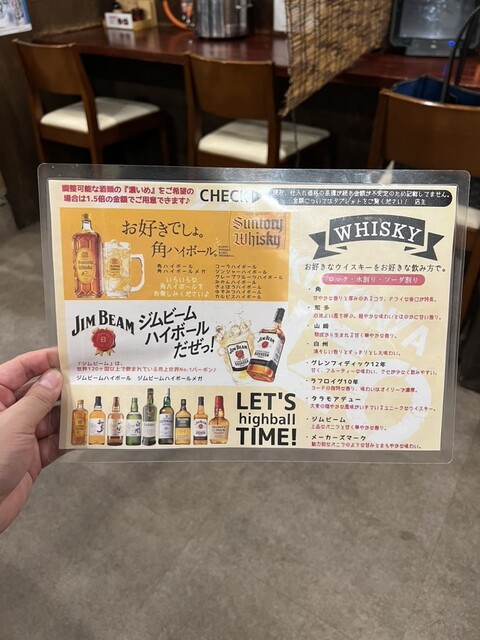 調整可能な酒類の『濃いめ』をご希望の
場合は1.5倍の金額でご用意できます♪
CHECK
現在、仕入れ価格の高騰が続き金額が不安定のため記載してません。
金額についてはタブレットをご覧ください! 店主
お好きでしょ。
角ハイボール。
Suntory
Whisky
角ハイボール
角ハイボールメガ
いろいろな
角ハイボールで
お楽しみください♪
コーラハイボール
ジンジャーハイボール
グレープフルーツハイボール
カルピスハイボール
JIM BEAM
ジムビーム
ハイボール
だぜっ!
『ジムビーム』は、
世界120ヶ国以上で飲まれている売上世界No.1バーボン!
ジムビームハイボール ジムビームハイボールメガ
LET'S
highball
TIME!
WHISKY
お好きなウイスキーをお好きな飲み方で。
ロック・水割り・ソーダ割り
・角
甘やかな香りと厚みのあるコク。ドライな後口が特長。
・知多
・山崎
・白州
・グレンフィディック12年
・ラフロイグ10年
・タラモアデュー
・ジムビーム
・メーカーズマーク